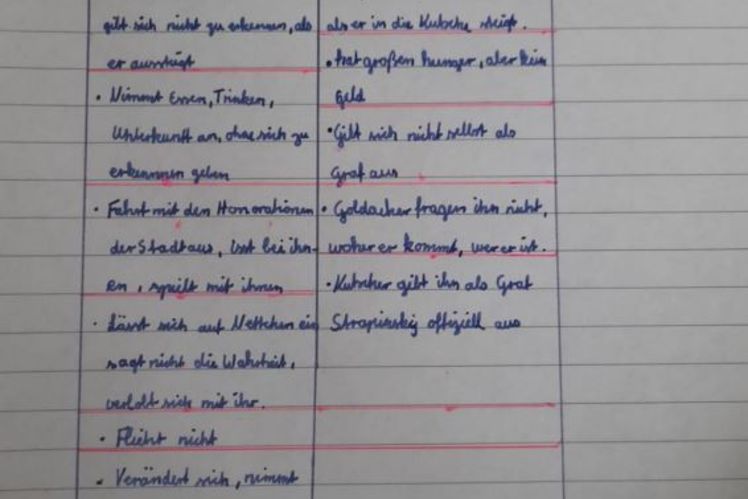 gibt sich nicht zu erkennen, als
er aussteigt
• Nimmt Essen, Trinken,
Unterkunft an, ohne sich zu
erkennen geben
• Fährt mit den Honorationen
der Stadt aus, isst bei ihn-
en, spielt mit ihnen
• Lässt sich auf Nettchen ein
sagt nicht die Wahrheit,
verlobt sich mit ihr.
• Flieht nicht
• Verändert sich, nimmt
als er in die Kutsche steigt.
• hat großen hunger, aber kein
Geld
• Gibt sich nicht selbst als
Graf aus
• Goldacher fragen ihn nicht,
woher er kommt, wer er ist.
• Kutscher gibt ihn als Graf
Strapinskij offiziell aus